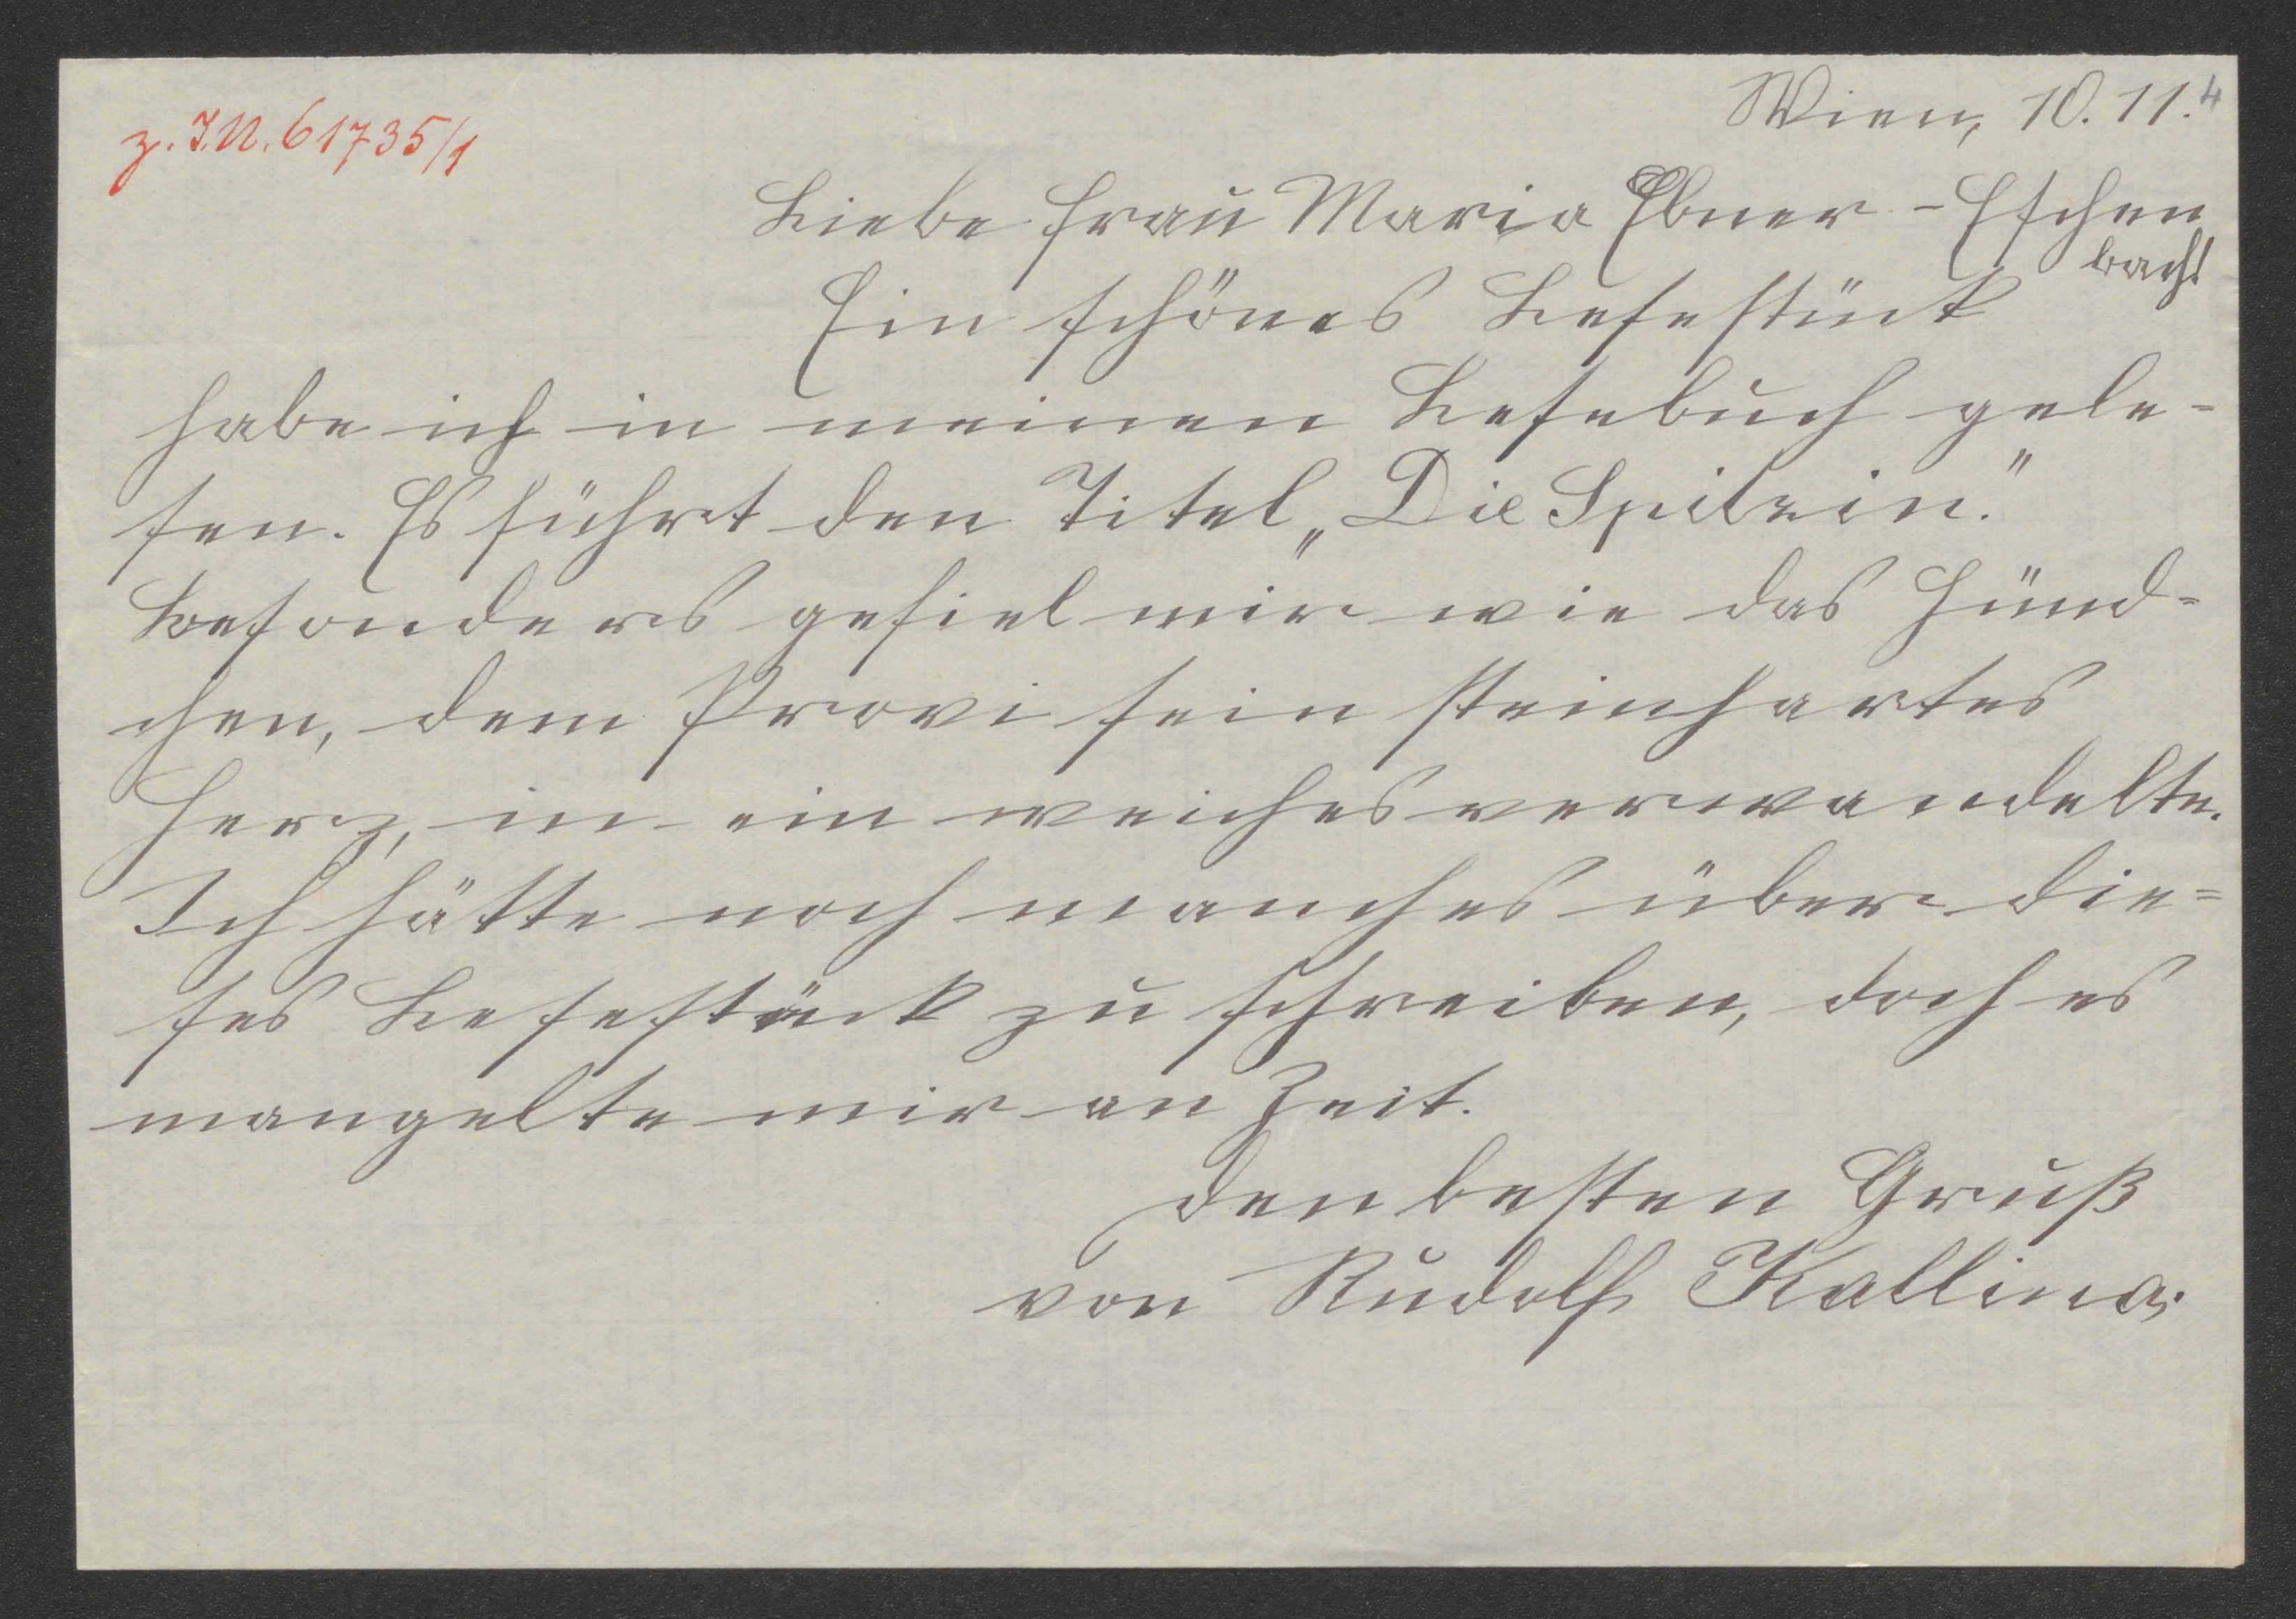 z. I.N. 61735/1
Wien, 10. 11. 4
Liebe Frau Maria Ebner-Eschen
bach!
Ein schönes Lesestück
habe ich in meinen Lesebuch gele-
sen. Es führt den Titel „Die Spitzin."
Besonders gefiel mir wie das Hünd-
chen, dem Provi sein steinhartes
Herz, in ein weiches verwandelte.
Ich hätte noch manches über die-
ses Lesestück zu schreiben, doch es
mangelte mir an Zeit.
Den besten Gruß
von Rudolf Kallina.